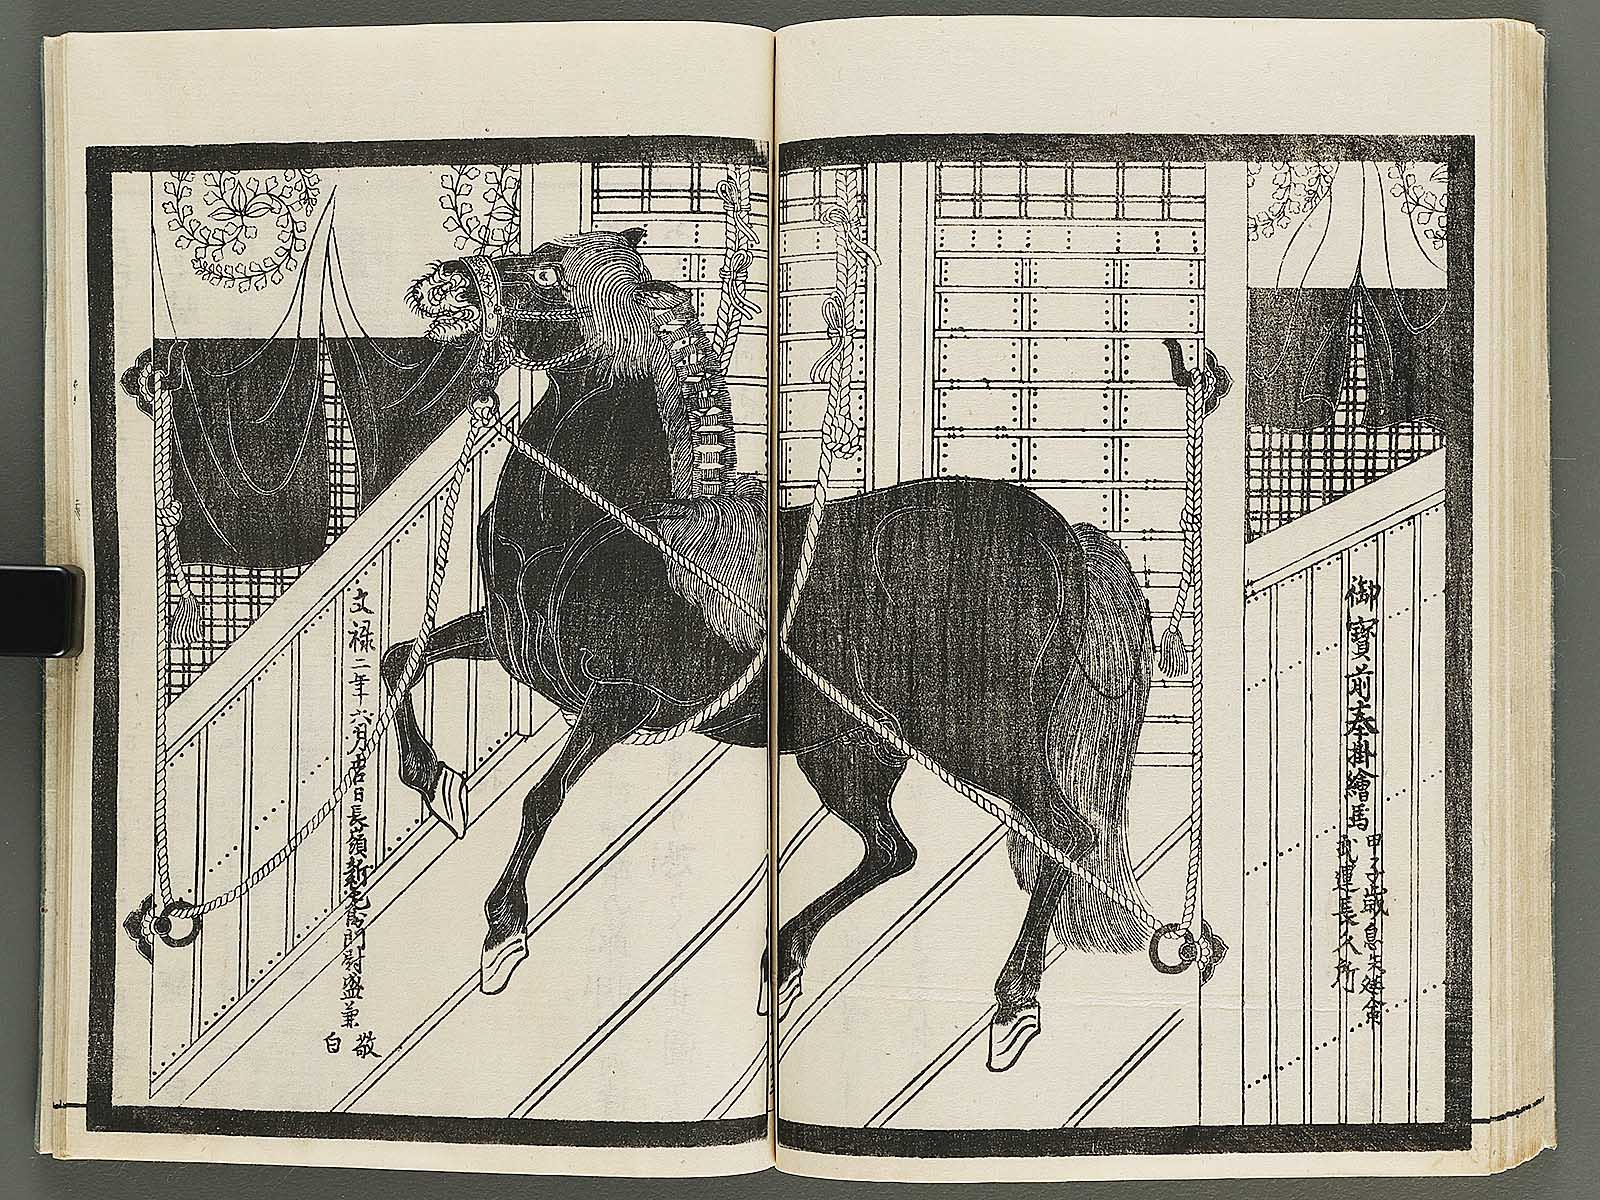 御寳前奉掛繪馬
甲子歳息災延命
武運長久所
文禄二年六月吉日長嶺新左衛門尉盛兼
敬
白